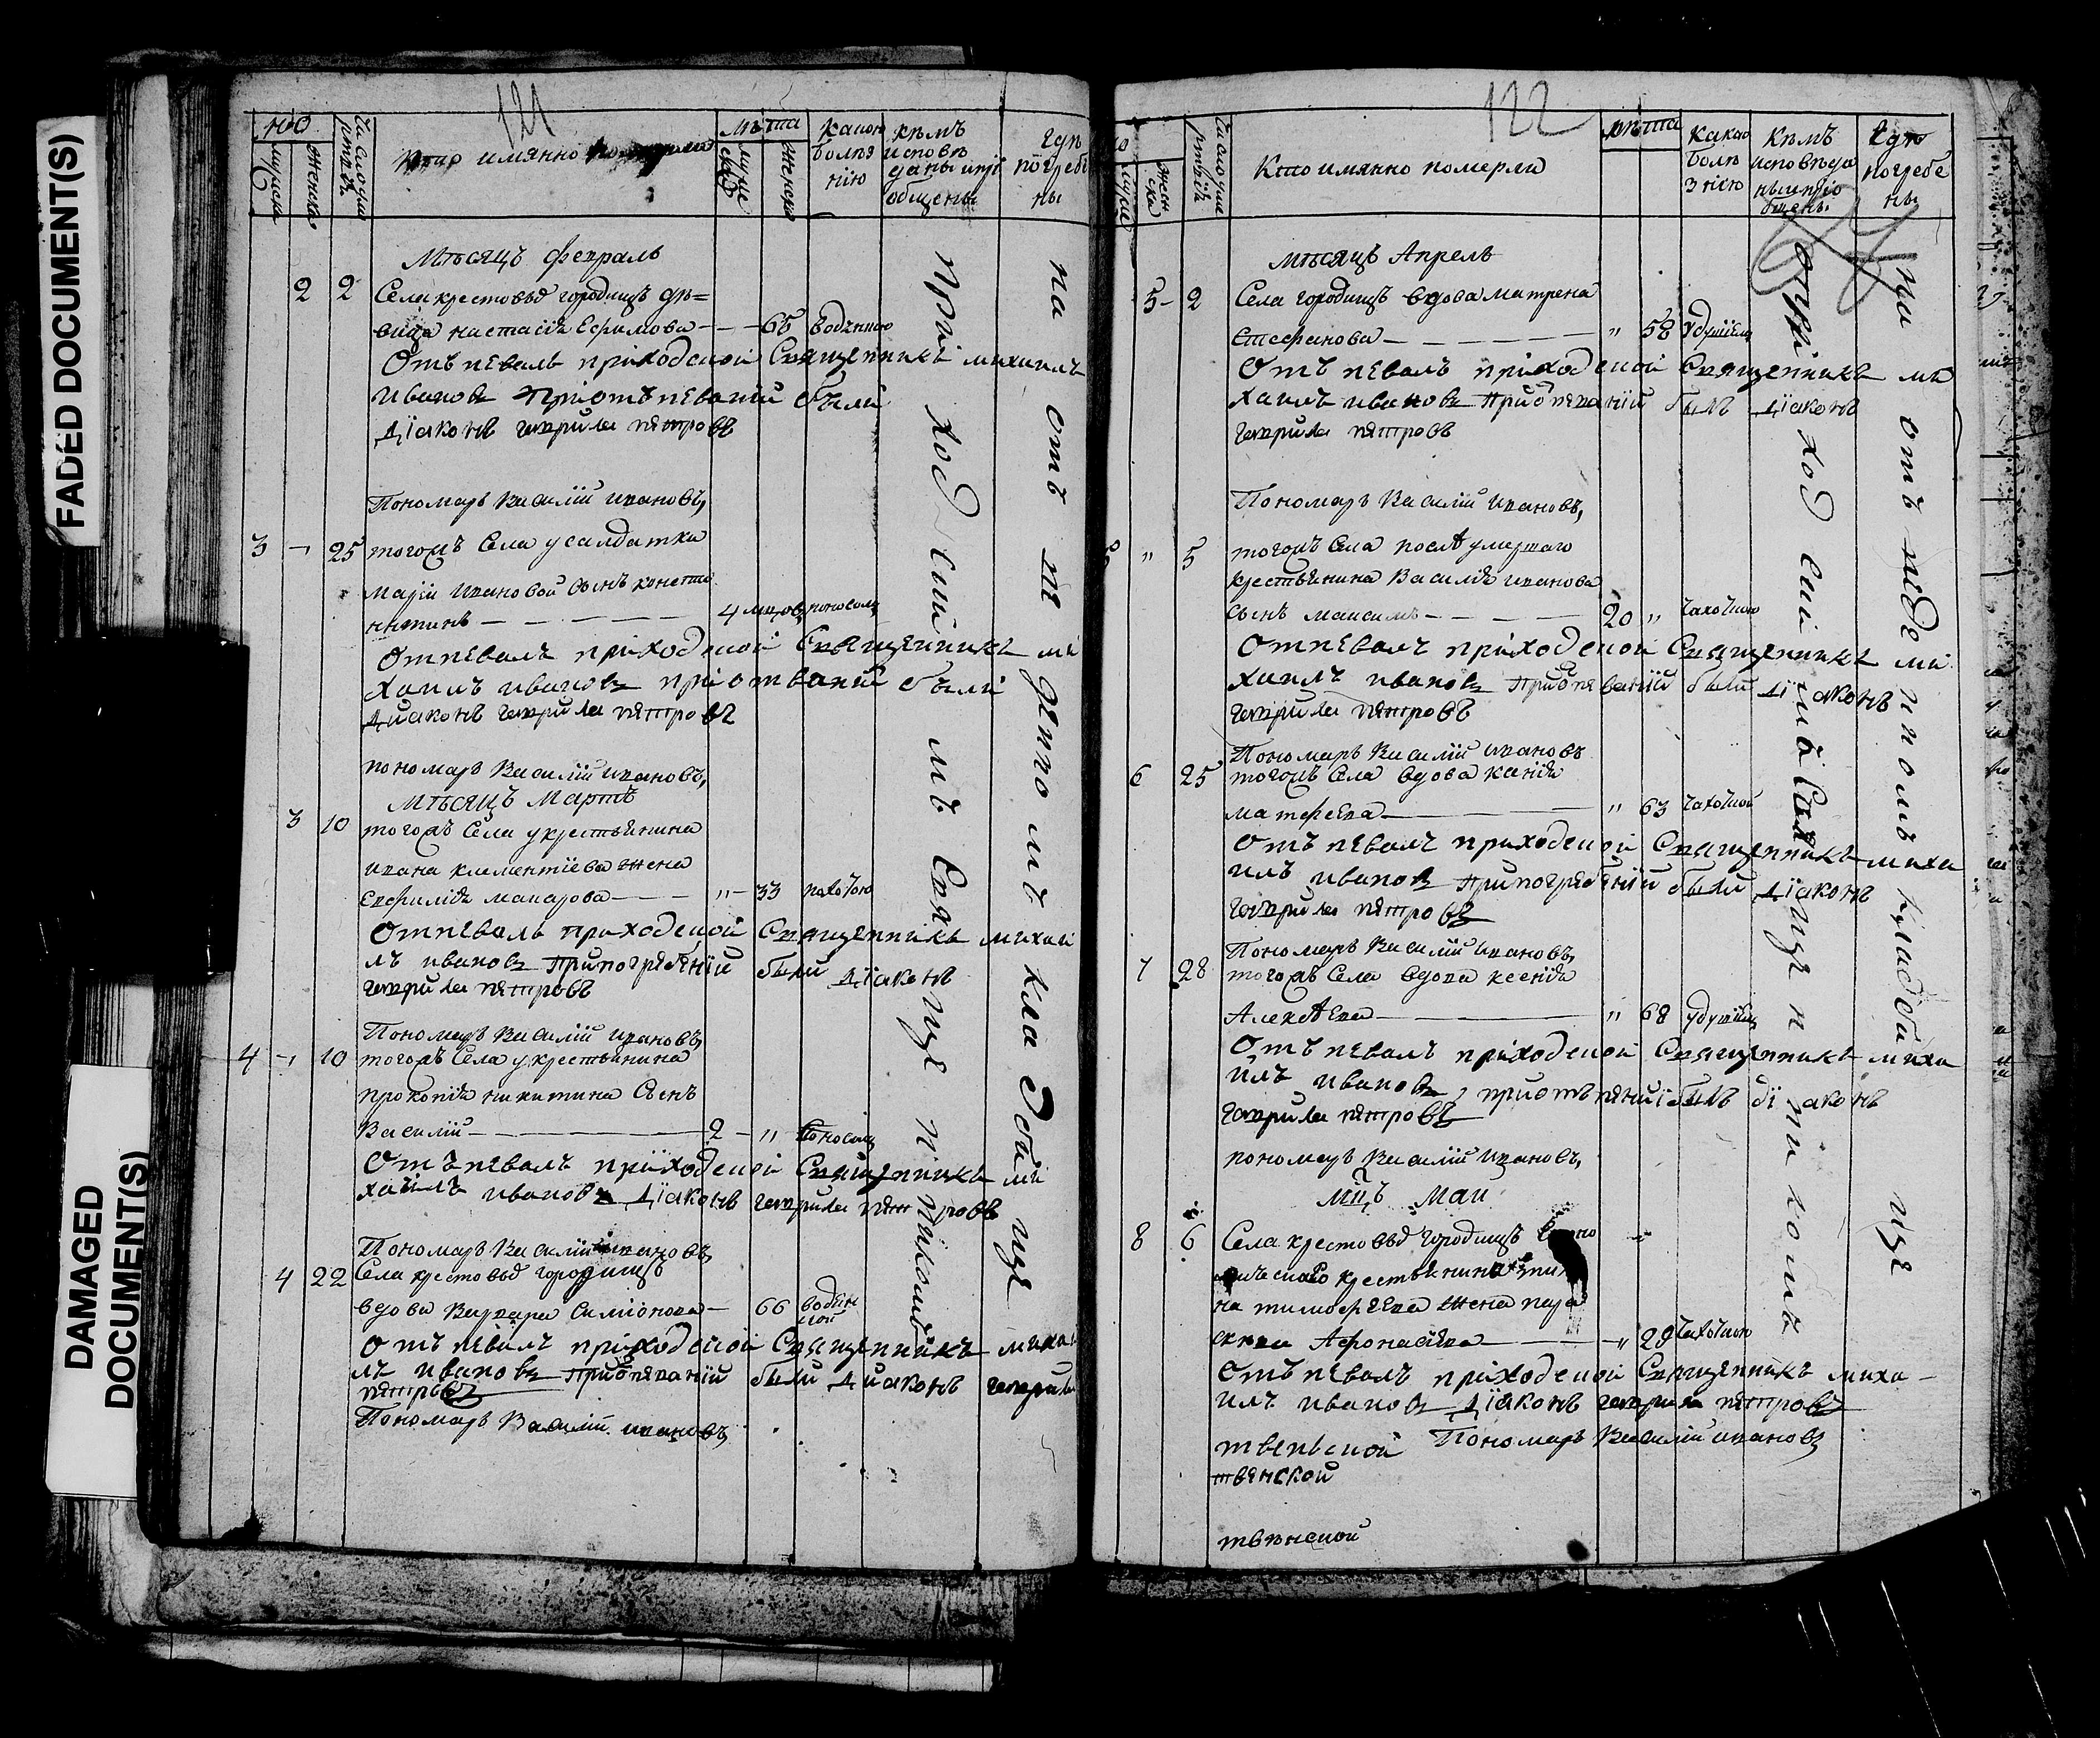 FADED DOCUMENT(S)
DAMAGED
DOCUMENT(S)
121
Число умертвій
Кто имянно померли
лѣта
мужеска
женска
Какою болѣзнію
кѣмъ исповѣданы и пріобщены
гдѣ погребены
Мѣсяцъ февраль
2 2 Села крестовыд городищъ дѣ=
вица настасія Ефимова — — 65 водяною
Отъпевалъ приходской Священникъ михаилъ
Ивановъ Приотъпеваніи были
діаконъ гаврила пѣтровъ
Пономарь Василій ивановъ,
3 – 25 тогожъ Села у салдатки
маріи ивановой сынъ консте
нтинъ — — — — 4 мцовъ поносомъ
Отпевалъ приходской Священникъ ми
хаилъ ивановъ приотваніи были
діаконъ гаврила пѣтровъ
пономарь Василій ивановъ,
Мѣсяцъ Мартъ
3 10 тогожъ Села у крестьянина
ивана клементіева жена
Евфимія макарова — — „ – 33
Отпевалъ приходской Священникъ михаи
лъ ивановъ Припогрябѣніи были діаконъ
гаврила пѣтровъ
Пономарь Василій ивановъ,
4 – 10 тогожъ Села у крестьянина
прокопія никитина Сынъ
Василій — — 2 – „ поносомъ
Отъпевалъ приходской Священникъ ми
хаилъ ивановъ діаконъ гаврила пѣтровъ
Пономарь Василій ивановъ,
4 22 Села крестовыд городищъ
вдова Варвара Симіонова — 66 водян
ной
Отъпевалъ приходской Священникъ михаи
лъ ивановъ Приопяваніи были діаконъ гаврила
пѣтровъ
Пономарь Василій ивановъ,
приходскимъ Священникомъ
на отведенномъ кладбище
122
Число умертвій
Кто имянно померли
лѣта
какою болѣзнію
Кѣмъ исповѣданы и пріобщены
Гдѣ погребены
Мѣсяцъ Апрель
5 – 2 Села городищъ вдова матрена
Стефанова — — — — — „ 58 Удушіемъ
Отъпевалъ приходской Священникъ ми
хаилъ ивановъ Приопяваніи былъ діаконъ
гаврила пѣтровъ
Пономарь Василій ивановъ,
5 „ 5 тогожъ Села послѣ умершаго
крестьянина Василія иванова
сынъ максимъ — — — 20 „ чахоткою
Отпевалъ приходской Священникъ ми
хаилъ ивановъ Приопяваніи были діаконъ
гаврила пѣтровъ
Пономарь Василій ивановъ
6 25 тогожъ Села вдова
матфеева — — „ 63
Отъпевалъ приходской Священникъ миха
илъ ивановъ Припогрябѣніи были діаконъ
гаврила пѣтровъ
Пономарь Василій ивановъ,
7 28 тогожъ Села вдова ксенія
Алексѣева — — „ 68 удушіемъ
Отъпевалъ приходской Священникъ миха
илъ ивановъ, приотъпяніи былъ діаконъ
гаврила пѣтровъ
пономарь Василій ивановъ,
мцъ маи
8 6 Села крестовыд городищъ
крестьянина
на тимофѣева жена пара
скева Афонасіева — — „ 29 чахоткою
Отъпевалъ приходской Священникъ миха –
илъ ивановъ діаконъ гаврила пѣтровъ
Пономарь Василій ивановъ
твенской
твянской
твенской